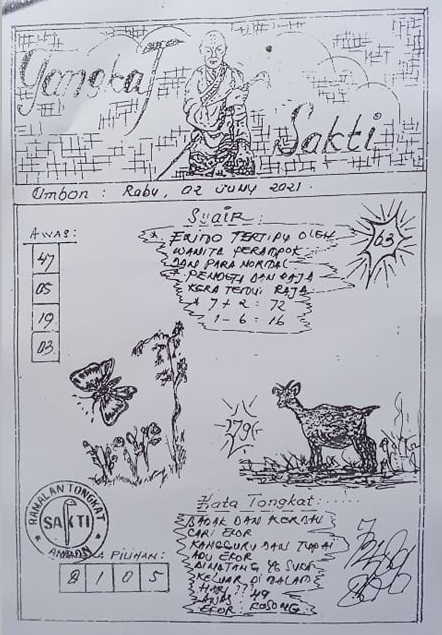 Tongkat Sakti
Ombon : Rabu, 02 Juny 2021.
AWAS:
47
05
19
03
Syair :
TERTIPU OLEH
WANITA PERAMPOK
DAN PARA NORMAL
* PENGTI DAN RAJA
KERA TEMUI RAJA
* 7 + 2 = 72
1 - 6 = 16
63
79
Kata Tongkat:
BADAK DAN KORBAN
CARI EKOR
KANGGURU DAN TUPAI
ADU EKOR
BINATANG YG SUKA
KELUAR DI MALAM
HARI ???
49
EKOR KOSONG
RAMALAN TONGKAT
SAKTI
AMBON
PILIHAN:
2 1 0 5